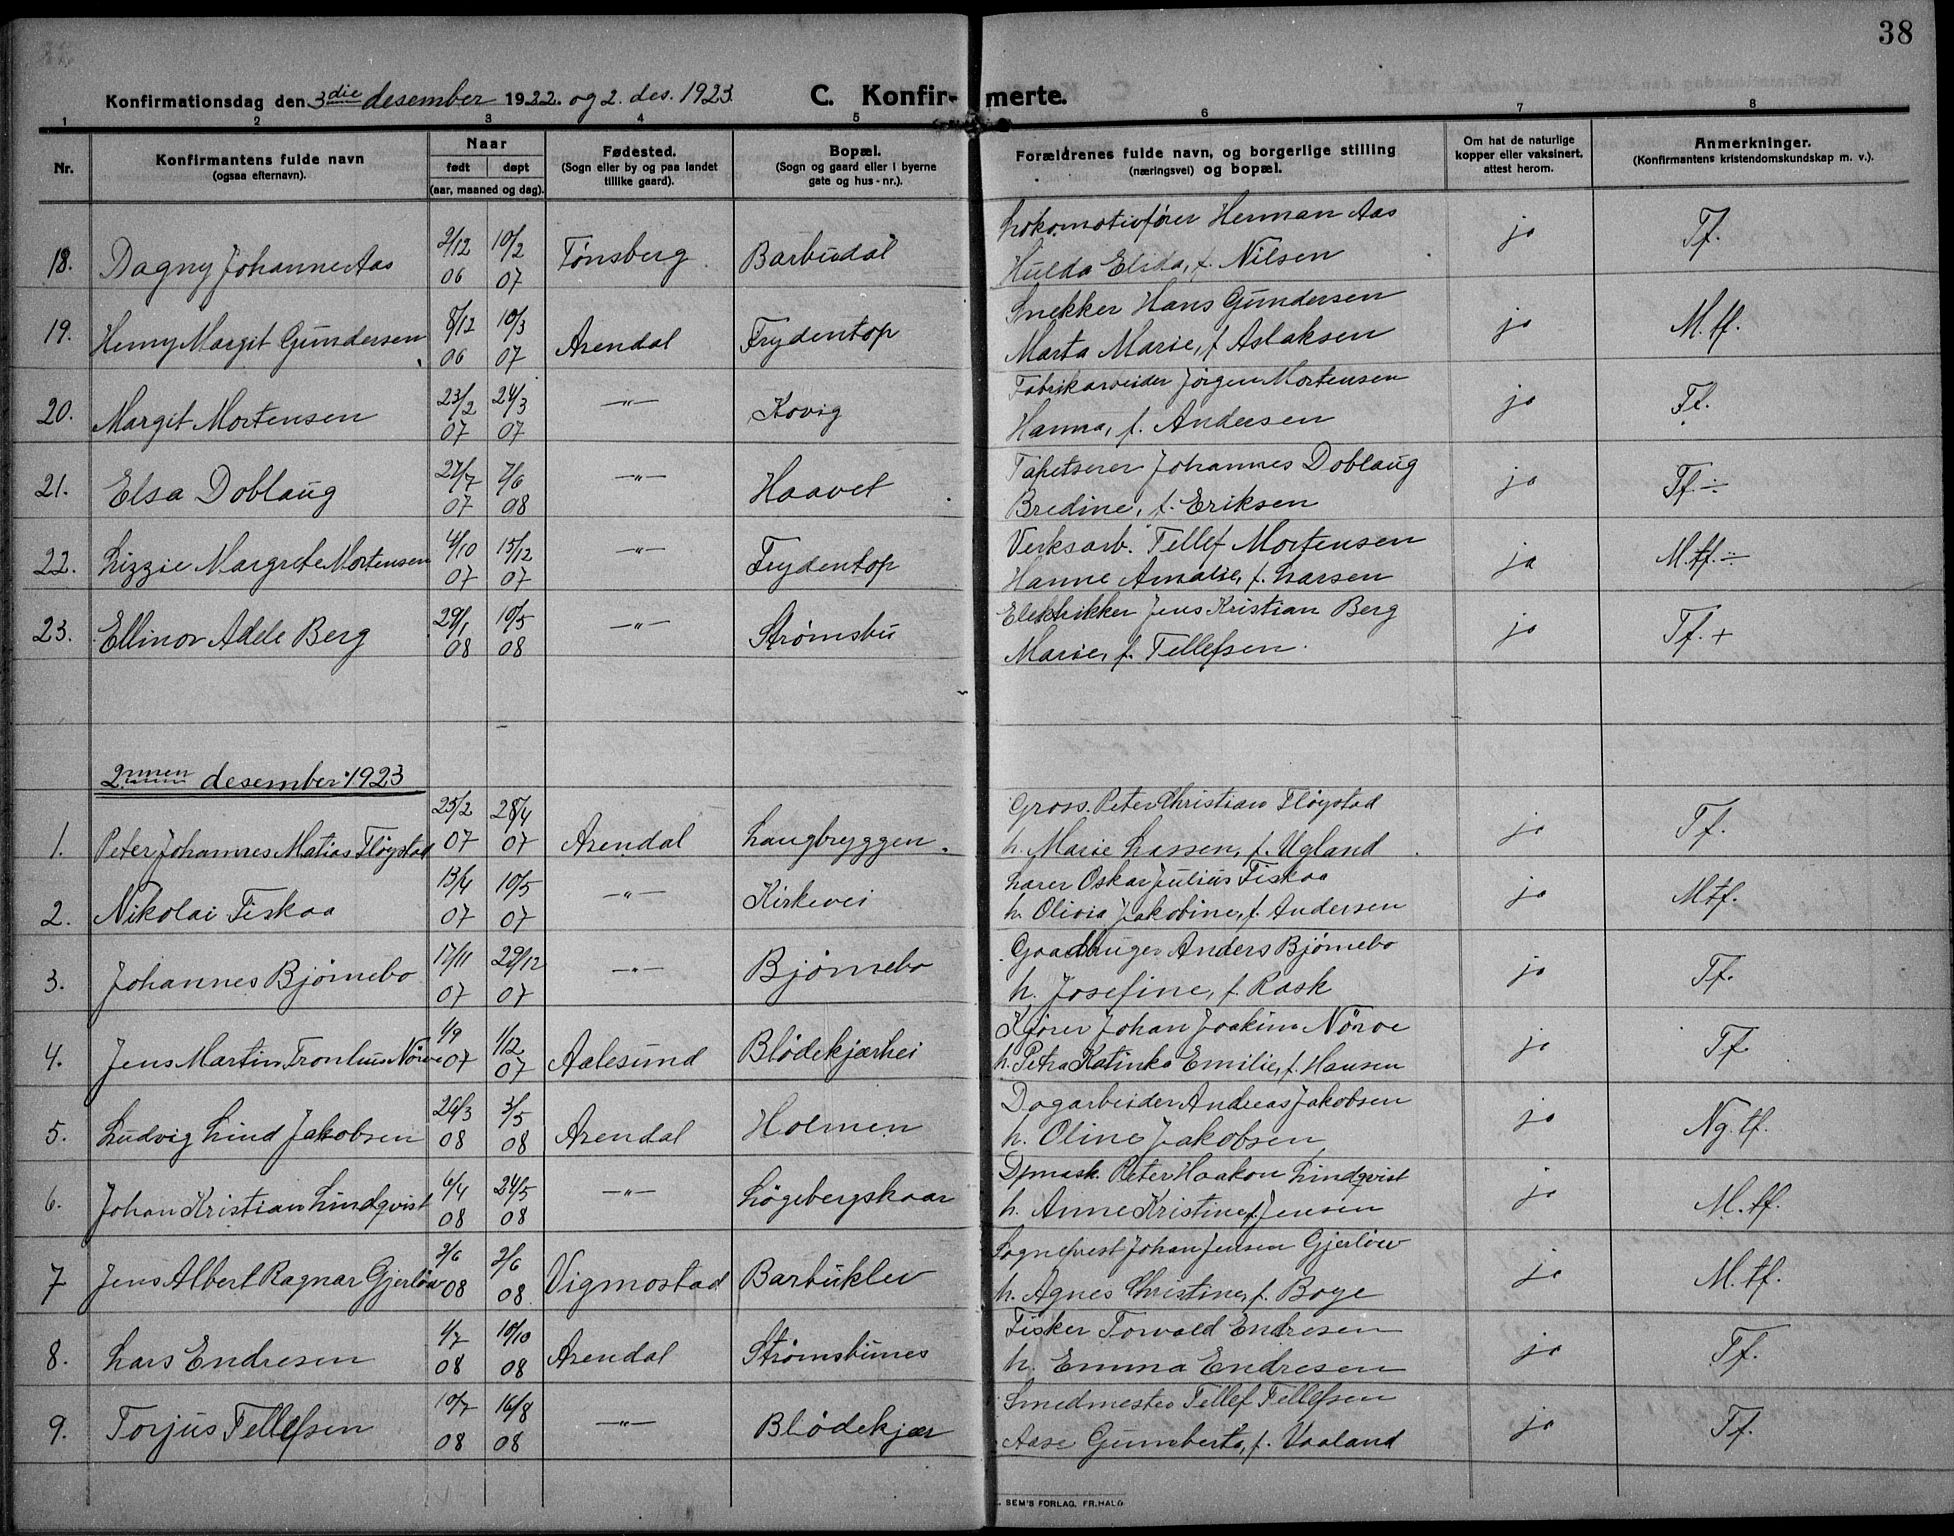 38
Konfirmationsdag den 3die desember 1922. og 2. des. 1923. C. Konfir- merte.
1 2 3 4 5 6 7 8
Nr. Konfirmantens fulde navn (ogsaa efternavn). Naar født døpt (aar, maaned og dag). Fødested. (Sogn eller by og paa landet tillike gaard). Bopæl. (Sogn og gaard eller i byerne gate og hus-nr.). Forældrenes fulde navn, og borgerlige stilling (næringsvei) og bopæl. Om hat de naturlige kopper eller vaksinert, attest herom. Anmerkninger. (Konfirmantens kristendomskundskap m. v.).
18. Dagny Johanne Aas 2/12 06 10/2 07 Tønsberg Barbudal Lokomotivfører Herman Aas ja Tf.
Hulda Elida, f. Nilsen
19. Henny Margit Gundersen 8/12 06 10/3 07 Arendal Frydentop Snekker Hans Gundersen ja M.tf.
Marta Marie, f. Aslaksen
20. Margit Mortensen 23/2 07 24/3 07 —"— Kovig Fabrikarbeider Jørgen Mortensen ja Tf.
Hanna, f. Andersen
21. Elsa Doblaug 27/7 07 7/6 08 —"— Haavet Tapetserer Johannes Doblaug ja Tf. ÷
Bredine, f. Eriksen
22. Lizzie Margrete Mortensen 4/10 07 15/12 07 —"— Frydentop Verksarb. Tellef Mortensen ja M.tf. ÷
Hanne Amalie, f. Larsen
23. Ellinor Adele Berg 29/1 08 10/5 08 —"— Strømsbu Elektrikker Jens Kristian Berg ja Tf. +
Marie, f. Tellefsen.
2nnen desember 1923
1. Peter Johannes Matias Fløystad 25/2 07 28/4 07 Arendal Langbryggen Gross. Peter Christian Fløystad ja Tf.
h. Marie Lassen, f. Ugland
2. Nikolai Fiskaa 13/4 07 10/5 07 —"— Kirkevei Lærer Oskar Julius Fiskaa ja Mtf.
h. Olivia Jakobine, f. Andersen
3. Johannes Bjørnebo 17/11 07 29/12 07 —"— Bjørnebo Gaardbruger Anders Bjørnebo ja Tf.
h. Josefine, f. Rask
4. Jens Martin Tronhus Nørve 1/9 07 1/12 07 Aalesund Blødekjærhei Kjører Johan Joakim Nörve ja Tf.
h. Petra Katinka Emilie, f. Hansen
5. Ludvig Lind Jakobsen 26/3 08 3/5 08 Arendal Holmen Dagarbeider Andreas Jakobsen ja Ng.tf.
h. Oline Jakobsen
6. Johan Kristian Lindqvist 6/4 08 24/5 08 —"— Løgebergskaar Dpmask. Peter Haakon Lindqvist ja M.tf.
h. Anne Kristine f. Jensen
7 Jens Albert Ragnar Gjerløw 2/6 08 2/6 08 Vigmostad Barbuklev Sogneprest Johan Jensen Gjerløw ja M.tf.
h. Agnes Christine, f. Boye
8. Lars Endresen 1/7 08 10/10 08 Arendal Strømsbunes Fisker Torvald Endresen ja Tf.
h. Emma Endresen
9. Torjus Tellefsen 10/7 08 16/8 08 —"— Blødekjær Smedmester Tellef Tellefsen ja Tf.
Aase Gunnberta, f. Vaaland
SEM'S FORLAG, FR.HALD